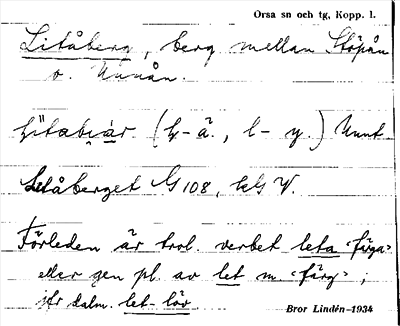 Orsa sn och tg, Kopp. l.
Litåberg, berg mellan Stöpån
o. Unnån.
(h-ä., l-y.) Unnt
Letåberget G 108, kls V.
Förleden är trol. verbet leta 'färga'
eller gen pl. av let m. 'färg';
jfr dalm. let-löv
Bror Lindén-1934